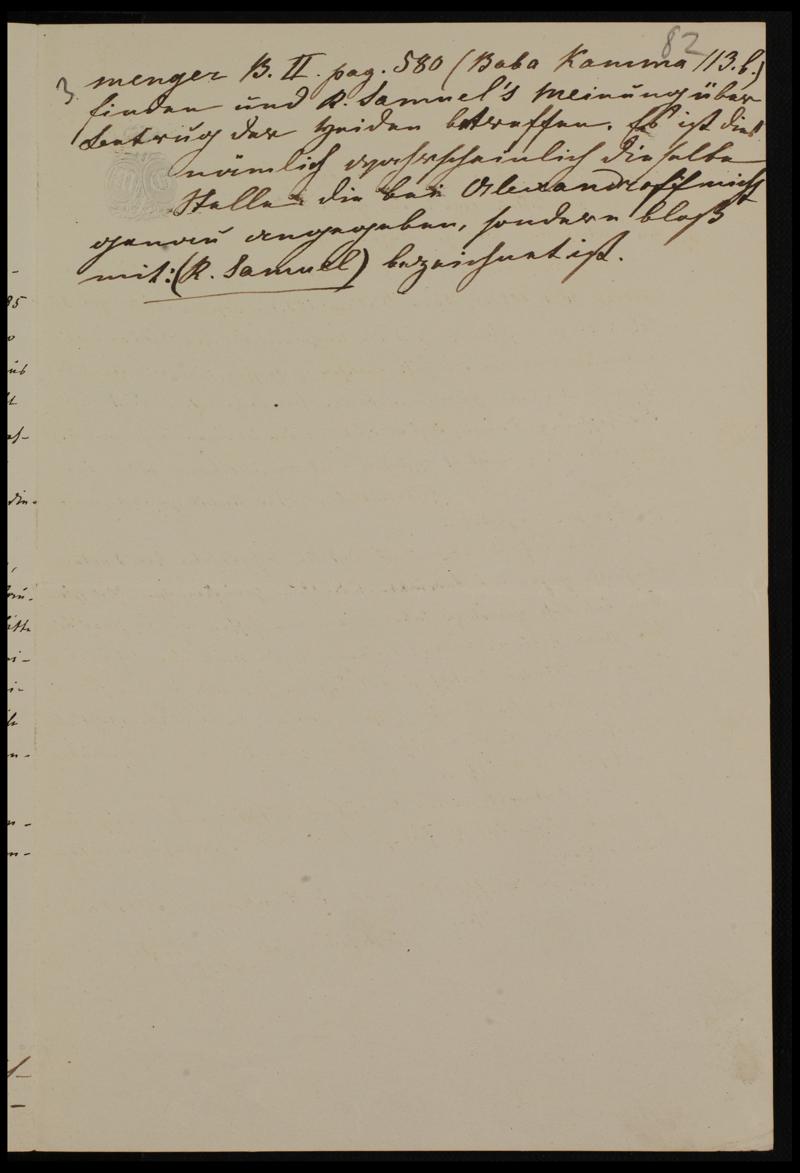 82
3
menger B. II. pag. 580 (Baba Kamma 113. b.)
finden und R. Samuel's Meinung über
Betrug der Heiden betreffen. Es ist dies
nämlich wahrscheinlich dieselbe
Stelle die bei Alexandroff nicht
genau angegeben, sondern bloß
mit: (R. Samuel) bezeichnet ist.